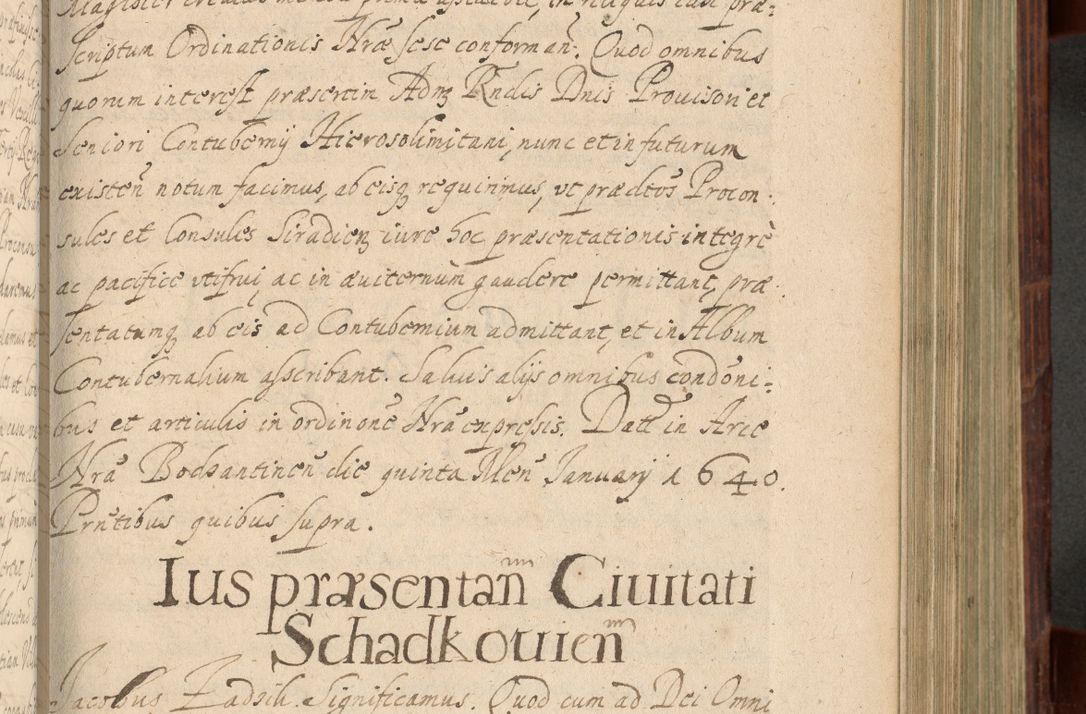 Magister creatus
scriptum Ordinationis Nrae sese conforman. Quod omnibus
quorum interest praesertim Adm Rndis Dnis Prouisori et
Seniori Contubernij Hierosolimitani, nunc et in futurum
existen notum facimus, ab eisq requirimus, vt praedtos Procon:
sules et Consules Siradien iure hoc praesentationis integrè
ac pacifice vtifrui ac in aeuiternum gaudere permittant, prae
sentatumq ab eis ad Contubernium admittant, et in Album
Contubernalium asscribant. Saluis alijs omnibus condōni:
bus et articulis in ordinone Nra expressis. Datt in Arce
Nra Bodzantinen die quinta Men January 1640.
Prntibus quibus supra.
Ius præsentan Ciuitati
Schadkouien
Jacobus Zadzik. Significamus. Quod cum ad Dei Omni